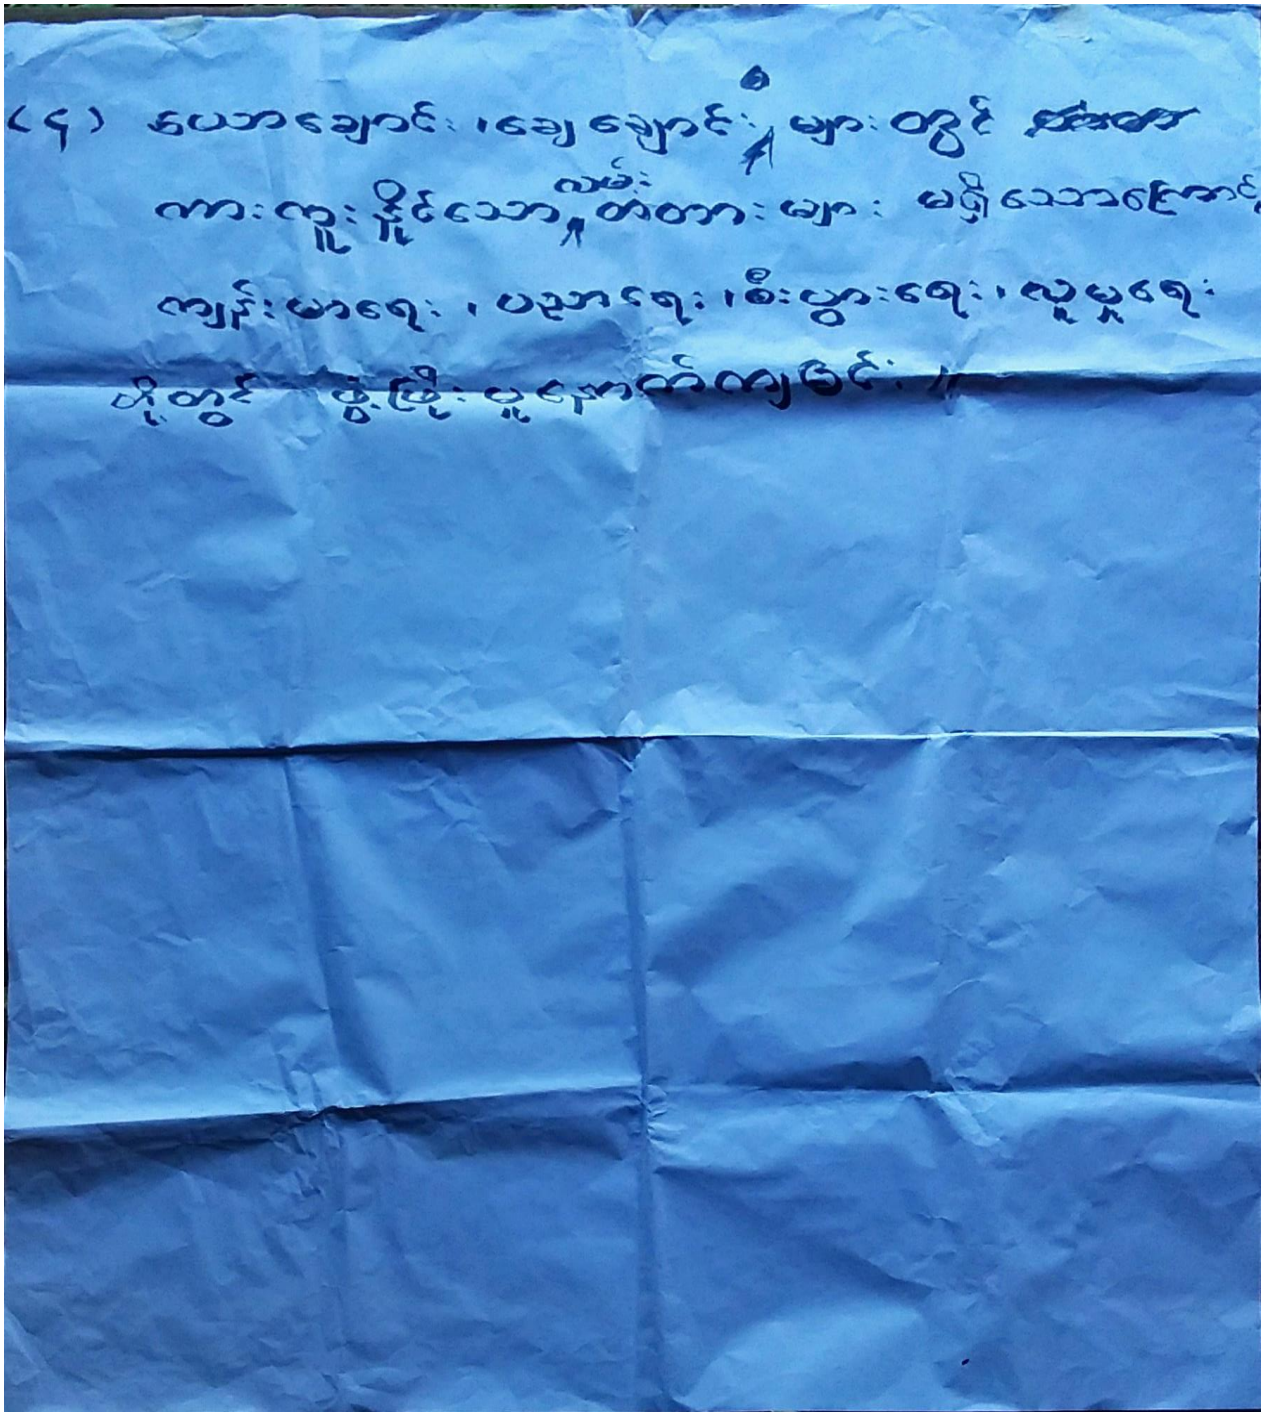 (၄) ပေသာချောင်း ၊ ချေချောင်း စ် များတွင်
ကားကူးနိုင်သော လမ်းတံတားများ မရှိသောကြောင့်
ကျန်းမာရေး ၊ ပညာရေး ၊ စီးပွားရေး ၊ လူမှုရေး
တို့တွင် ဖွံ့ဖြိုးမှုနောက်ကျခြင်း ။